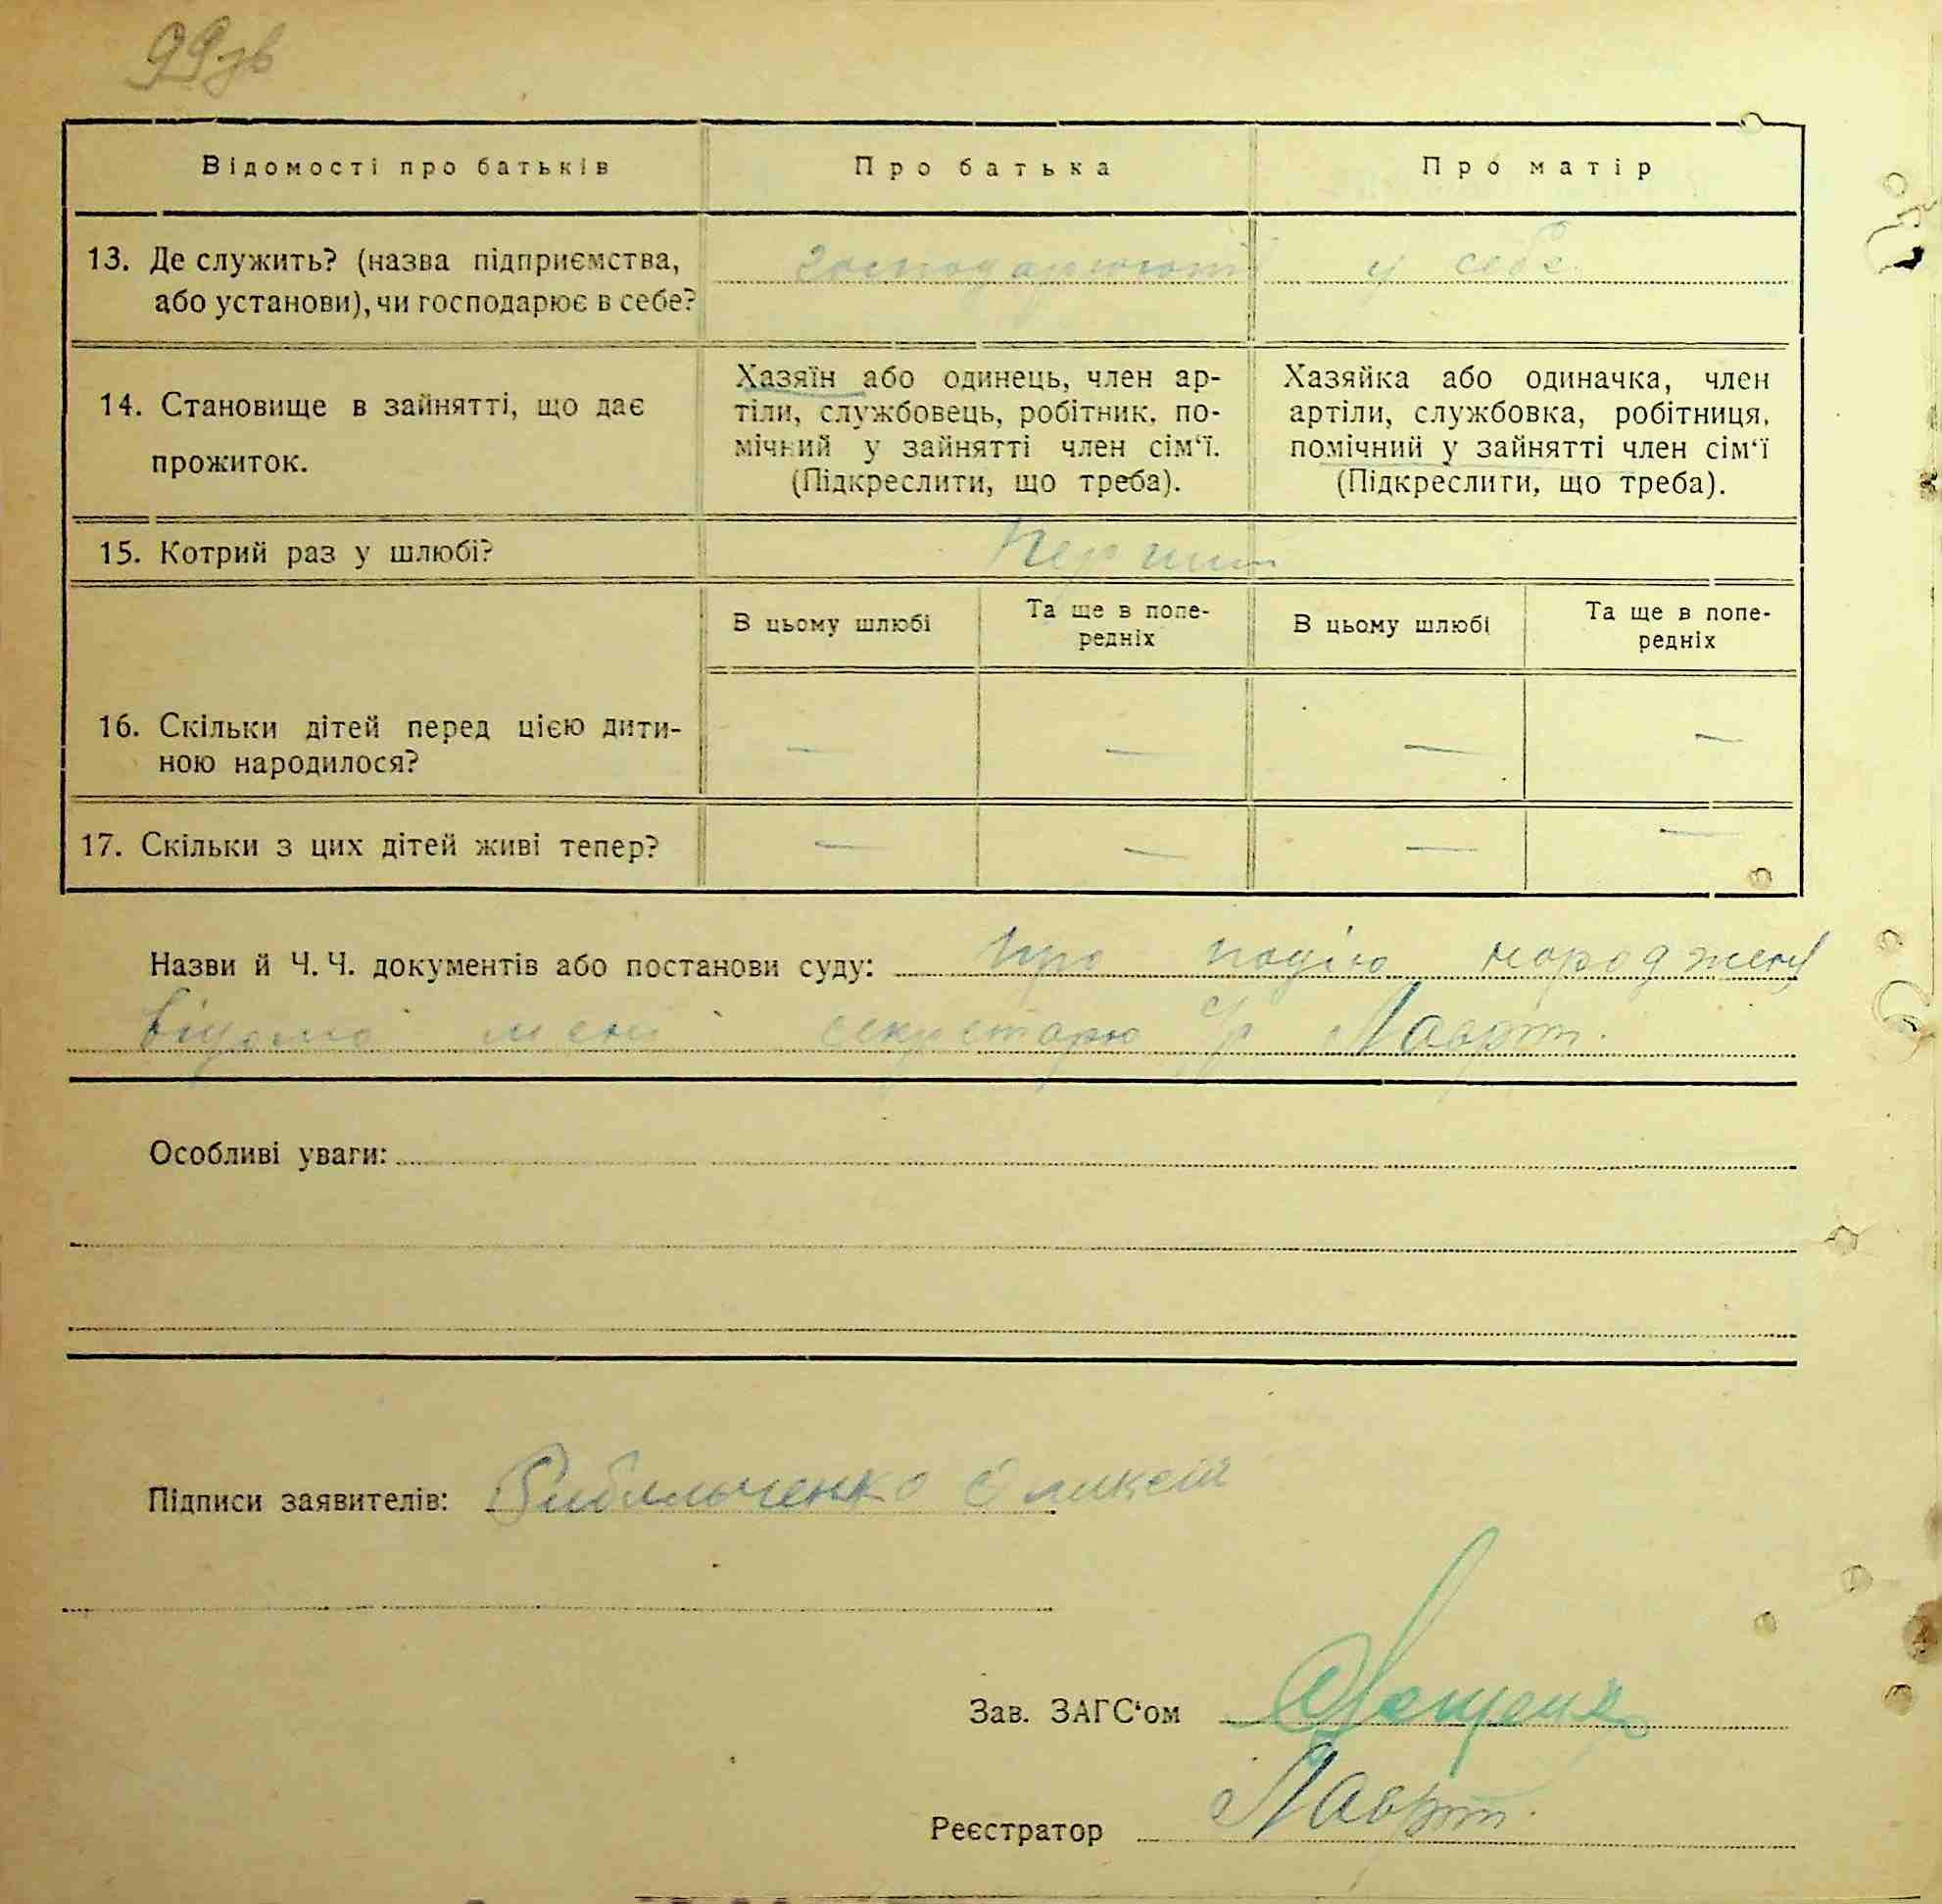 99зв
Відомості про батьків Про батька Про матір
13. Де служить? (назва підприємства, або установи), чи господарює в себе? господарюют у себе
14. Становище в зайнятті, що дає прожиток.
Хазяїн або одинець, член ар-
тіли, службовець, робітник, по-
мічний у зайнятті член сім‘ї.
(Підкреслити, що треба).
Хазяйка або одиначка, член
артіли, службовка, робітниця,
помічний у зайнятті член сім‘ї
(Підкреслити, що треба).
15. Котрий раз у шлюбі?
В цьому шлюбі
Та ще в попе-
редніх
В цьому шлюбі
Та ще в попе-
редніх
16. Скільки дітей перед цією дити-
ною народилося? — — — —
17. Скільки з цих дітей живі тепер? — — — —
Назви й Ч. Ч. документів або постанови суду: про подію народженя
відомо мені секретарю с/р Лаврт.
Особливі уваги:
Підписи заявителів:
Зав. ЗАГС‘ом
Реєстратор Лаврт.